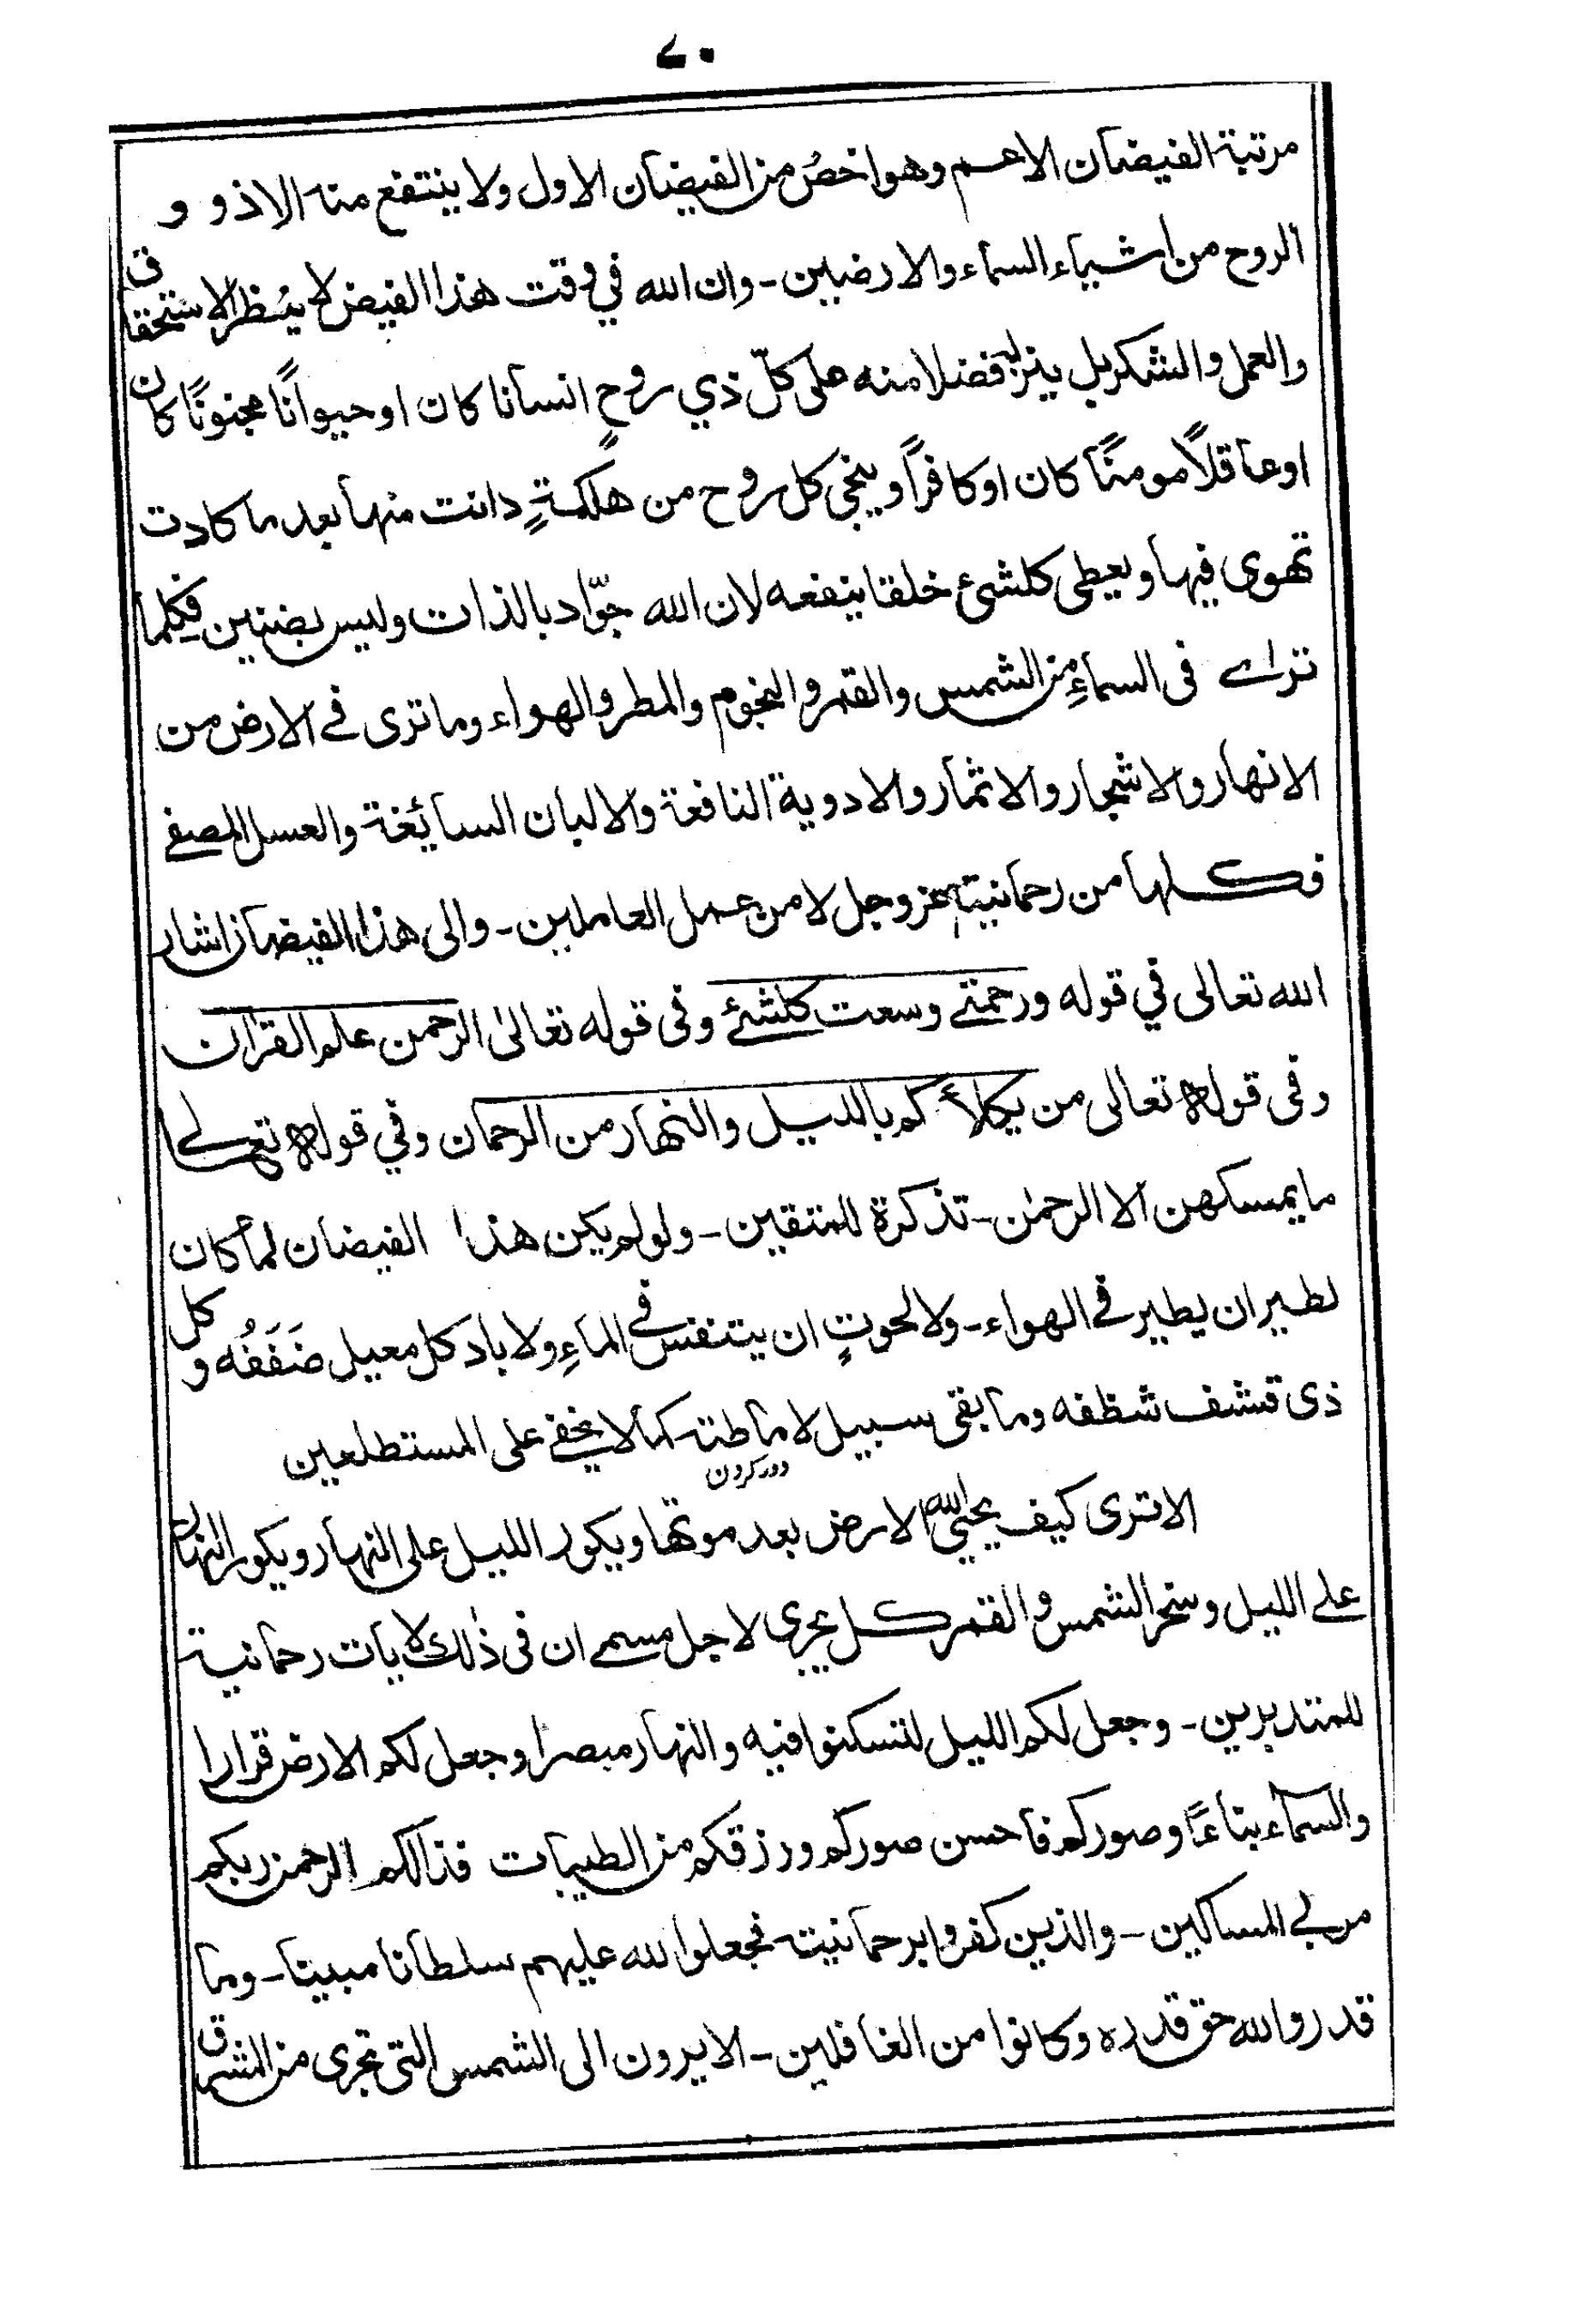 ۷۰
مرتبة الفیضان الاعم وهو اخصُ من الفیضان الاول ولا ینتفع منه الا ذوو
الروح من اشیاء السماء والارضین - وان الله في وقت هذا الفیض لا ینظر الاستحقاق
والعمل والشکر بل ینزله فضلا منه علی کلّ ذي روحٍ انسانا کان او حیوانًا مجنونًا کان
او عاقلًا مومنًا کان او کافرًا وینجی کل روح من هلکةٍ دانت منها بعد ما کادت
تهوی فیها ویعطی کلشئ خلقا ینفعه لان الله جوّاد بالذات ولیس بضنین فکلما
تراے فی السماءِ من الشمس والقمر والنجوم والمطر والهواء وما تری فے الارض من
الانهار والاشجار والاثمار والادویة النافعة والالبان السائغة والعسل المصفے
فکلها من رحمانیته عزوجل لا من عمل العاملین - والی هذا الفیضان اشار
الله تعالی في قوله ورحمتے وسعت کلشئے وفی قوله تعالیٰ الرحمن علم القراٰن
وفی قوله تعالی من یکلأکم باللیل والنهار من الرحمان وفي قوله تعالے
ما یمسکهن الا الرحمٰن - تذکرة للمتقین - ولو لم یکن هذا الفیضان لما کان
لطیر ان یطیر فے الهواء - ولا لحوتٍ ان یتنفس فے الماءِ ولاباد کل معیل ضَفَفُه و کل
ذی قشف شظفه وما بقی سبیل لاماطته کما لا یخفے علی المستطلعین
دور کردن
الا تری کیف یحیی الله الارض بعد موتها ویکور اللیل علی النهار ویکور النهار
علے اللیل وسخر الشمس والقمر کل یجری لاجل مسمے ان فی ذٰلک لاٰیات رحمانیة
للمتدبرین - وجعل لکم اللیل لتسکنوا فیه والنهار مبصرا وجعل لکم الارض قرارا
والسماء بناءًا وصورکم فاحسن صورکم ورزقکم من الطیبات فذالکم الرحمن ربکم
مربے المساکین - والذین کفروا برحمانیته فجعلوا لله علیهم سلطانا مبینا - وما
قدروا الله حق قدره وکانوا من الغافلین - الا یرون الی الشمس التی تجری من المشرق